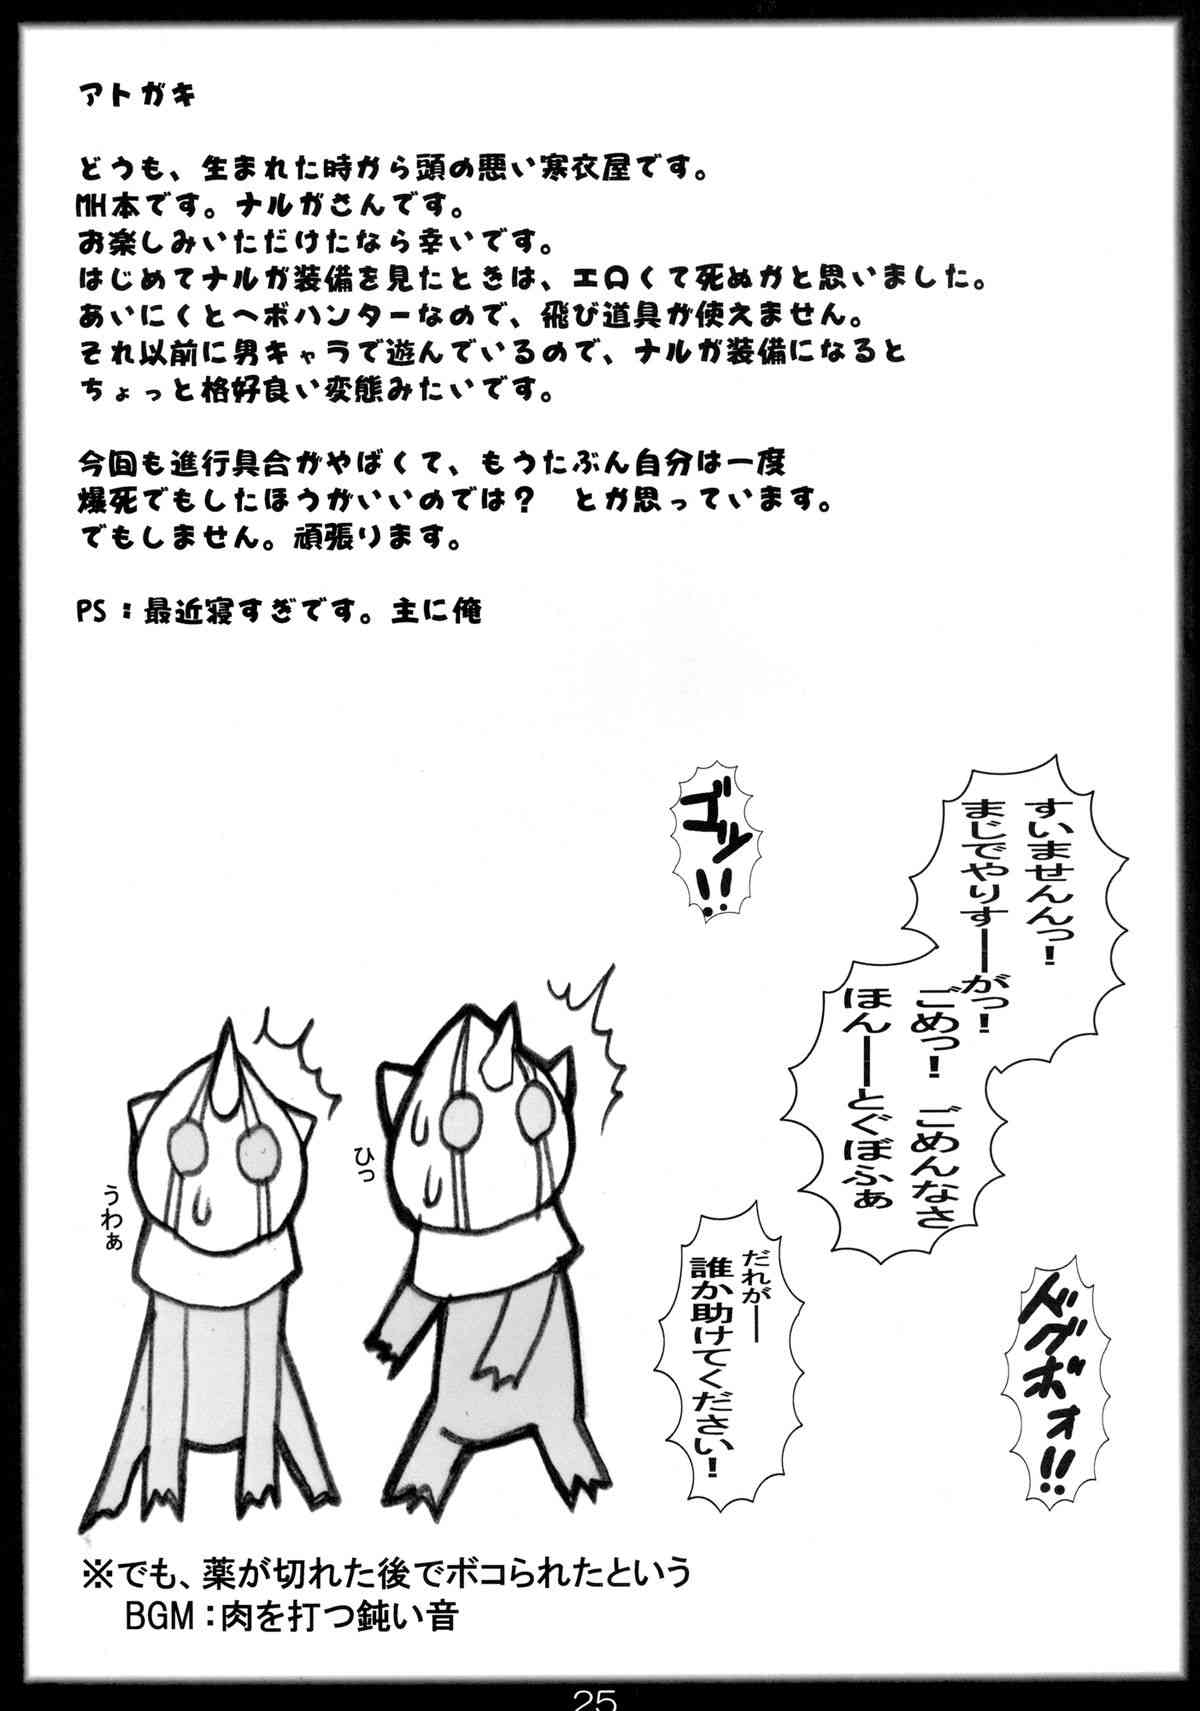 アトガキ
どうも、生まれた時から頭の悪い寒衣屋です。
MH本です。ナルガさんです。
お楽しみいただけたなら幸いです。
はじめてナルガ装備を見たときは、エロくて死ぬかと思いました。
あいにくとヘボハンターなので、飛び道具が使えません。
それ以前に男キャラで遊んでいるので、ナルガ装備になると
ちょっと格好良い変態みたいです。
今回も進行具合がやばくて、もうたぶん自分は一度
爆死でもしたほうがいいのでは？　とか思っています。
でもしません。頑張ります。
PS：最近寝すぎです。主に俺
すいませんんっ！
まじでやりすーーがっ！
ごめっ！　ごめんなさ
ほんーーとぐぼふぁ
ゴッ!!
だれがーー
誰か助けてください！
ドグボォ!!
ひっ
うわぁ
※でも、薬が切れた後でボコられたという
BGM：肉を打つ鈍い音
25